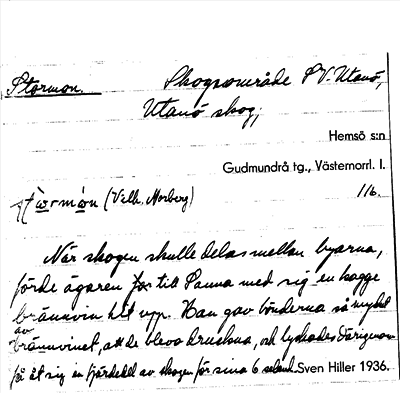 Stormon.
Skogsområde SV. Utanö,
Utanö skog;
Hemsö s:n
Gudmundrå tg., Västernorrl. l.
116.
(Vilh. Norberg)
När skogen skulle delas mellan byarna,
förde ägaren för till Sanna med sig en kagge
brännvin hit upp. Han gav bönderna så mycket
av
brännvinet, att de blevo druckna, och lyckades därigenom
få åt sig en fjärdedel av skogen för sina 6 seland. Sven Hiller 1936.